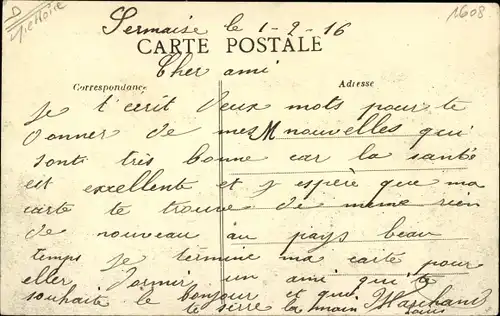 D
Victoire
1608
Sermaise le 1-2-16
CARTE POSTALE
Cher ami
Correspondance
Adresse
je t'écrit deux mots pour te
donner de mes nouvelles qui
sont très bonne car la santé
est excellente et j espère que ma
carte te trouve de meme rien
de nouveau au pays beau
temps je termine ma carte pour
aller dormir un ami qui te
souhaite le bonjour et qui
te serre la main Marchand
Louis